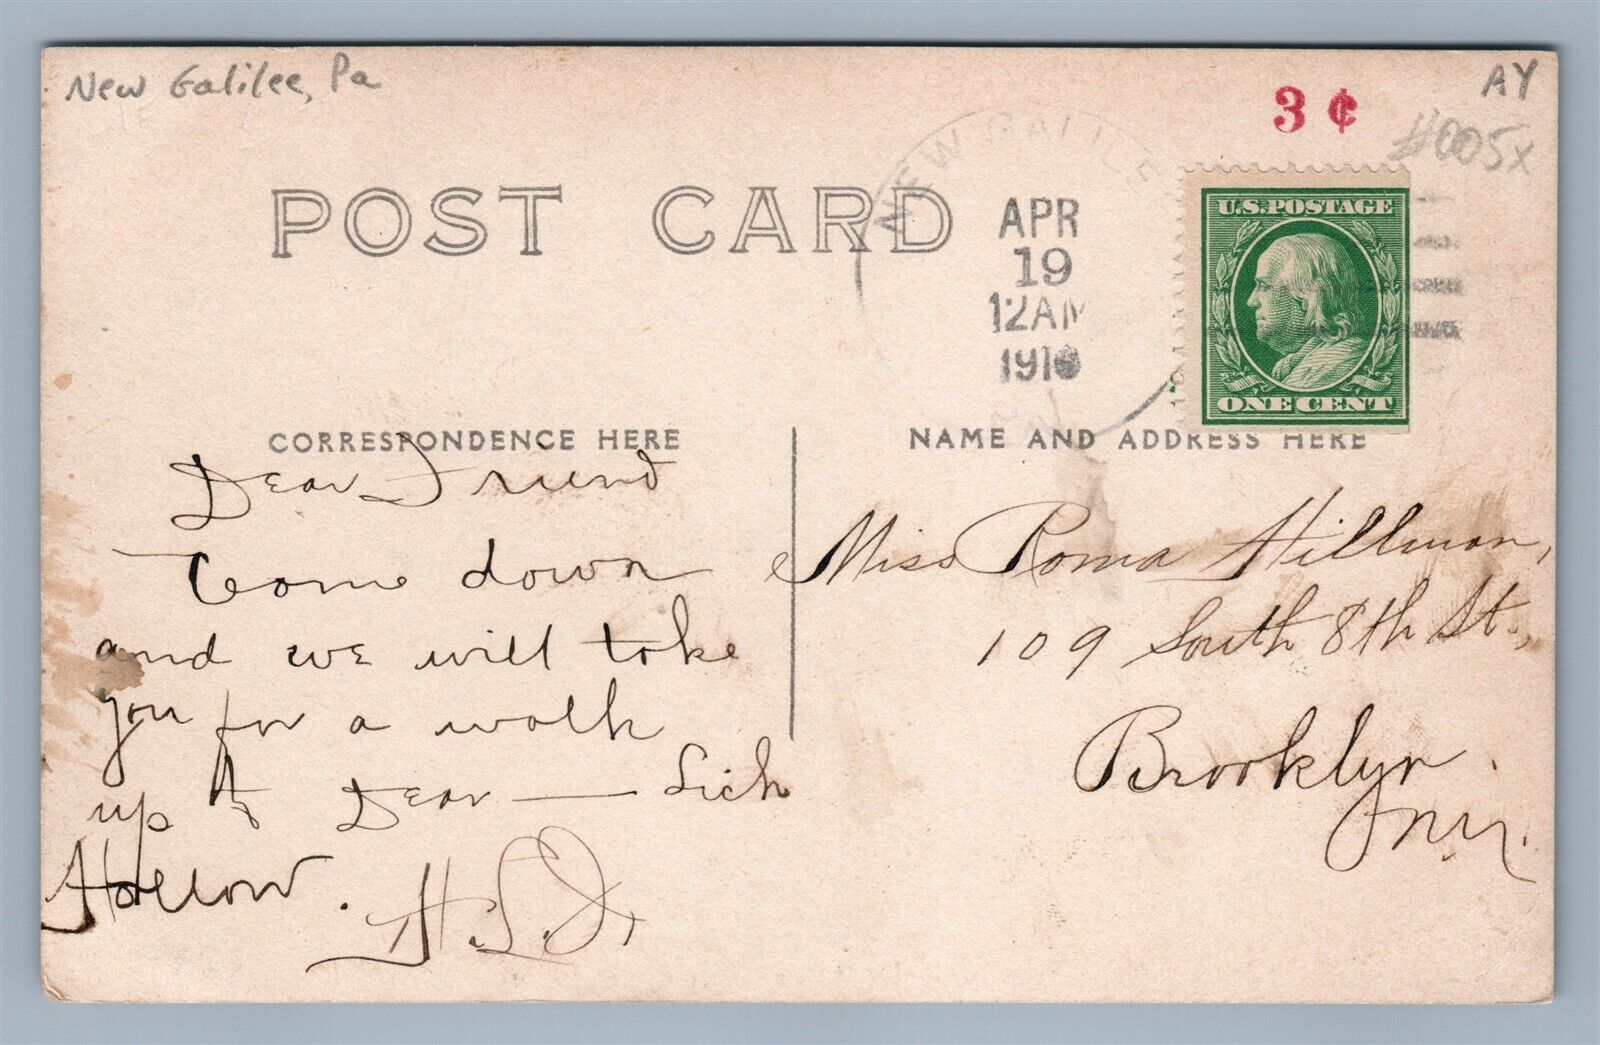 New Galilee, Pa
AY
3 ¢
#005x
POST CARD
NEW GALILE
APR
19
12AM
191
U.S. POSTAGE
ONE CENT
CORRESPONDENCE HERE
NAME AND ADDRESS HERE
Dear Friend
Come down
and we will take
you for a walk
up Dear — Lick
Hollow.
Miss Roma Hillman,
109 South 8th St.,
Brooklyn.
N.Y.